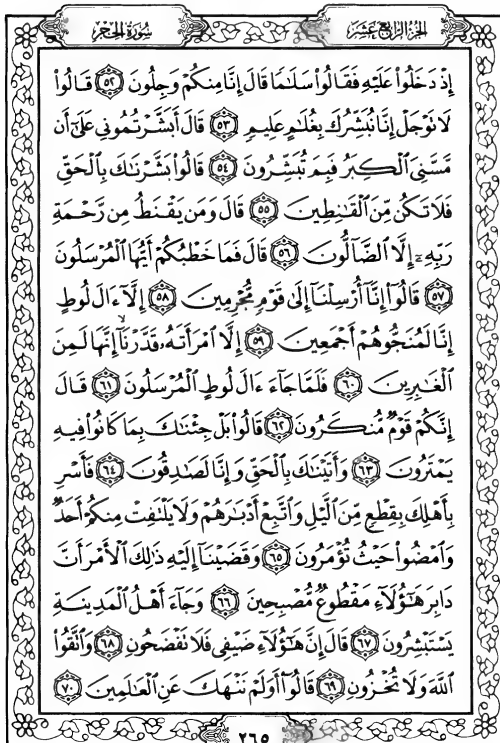 الجزء الرابع عشر
سورة الحجر
إِذْ دَخَلُوا۟ عَلَيْهِ فَقَالُوا۟ سَلَٰمًا قَالَ إِنَّا مِنكُمْ وَجِلُونَ ٥٢ قَالُوا۟
لَا تَوْجَلْ إِنَّا نُبَشِّرُكَ بِغُلَٰمٍ عَلِيمٍ ٥٣ قَالَ أَبَشَّرْتُمُونِى عَلَىٰٓ أَن
مَّسَّنِىَ ٱلْكِبَرُ فَبِمَ تُبَشِّرُونَ ٥٤ قَالُوا۟ بَشَّرْنَٰكَ بِٱلْحَقِّ
فَلَا تَكُن مِّنَ ٱلْقَٰنِطِينَ ٥٥ قَالَ وَمَن يَقْنَطُ مِن رَّحْمَةِ
رَبِّهِۦٓ إِلَّا ٱلضَّآلُّونَ ٥٦ قَالَ فَمَا خَطْبُكُمْ أَيُّهَا ٱلْمُرْسَلُونَ
٥٧ قَالُوٓا۟ إِنَّآ أُرْسِلْنَآ إِلَىٰ قَوْمٍ مُّجْرِمِينَ ٥٨ إِلَّآ ءَالَ لُوطٍ
إِنَّا لَمُنَجُّوهُمْ أَجْمَعِينَ ٥٩ إِلَّا ٱمْرَأَتَهُۥ قَدَّرْنَآ إِنَّهَا لَمِنَ
ٱلْغَٰبِرِينَ ٦٠ فَلَمَّا جَآءَ ءَالَ لُوطٍ ٱلْمُرْسَلُونَ ٦١ قَالَ
إِنَّكُمْ قَوْمٌ مُّنكَرُونَ ٦٢ قَالُوا۟ بَلْ جِئْنَٰكَ بِمَا كَانُوا۟ فِيهِ
يَمْتَرُونَ ٦٣ وَأَتَيْنَٰكَ بِٱلْحَقِّ وَإِنَّا لَصَٰدِقُونَ ٦٤ فَأَسْرِ
بِأَهْلِكَ بِقِطْعٍ مِّنَ ٱلَّيْلِ وَٱتَّبِعْ أَدْبَٰرَهُمْ وَلَا يَلْتَفِتْ مِنكُمْ أَحَدٌ
وَٱمْضُوا۟ حَيْثُ تُؤْمَرُونَ ٦٥ وَقَضَيْنَآ إِلَيْهِ ذَٰلِكَ ٱلْأَمْرَ أَنَّ
دَابِرَ هَٰٓؤُلَآءِ مَقْطُوعٌ مُّصْبِحِينَ ٦٦ وَجَآءَ أَهْلُ ٱلْمَدِينَةِ
يَسْتَبْشِرُونَ ٦٧ قَالَ إِنَّ هَٰٓؤُلَآءِ ضَيْفِى فَلَا تَفْضَحُونِ ٦٨ وَٱتَّقُوا۟
ٱللَّهَ وَلَا تُخْزُونِ ٦٩ قَالُوٓا۟ أَوَلَمْ نَنْهَكَ عَنِ ٱلْعَٰلَمِينَ ٧٠
٢٦٥